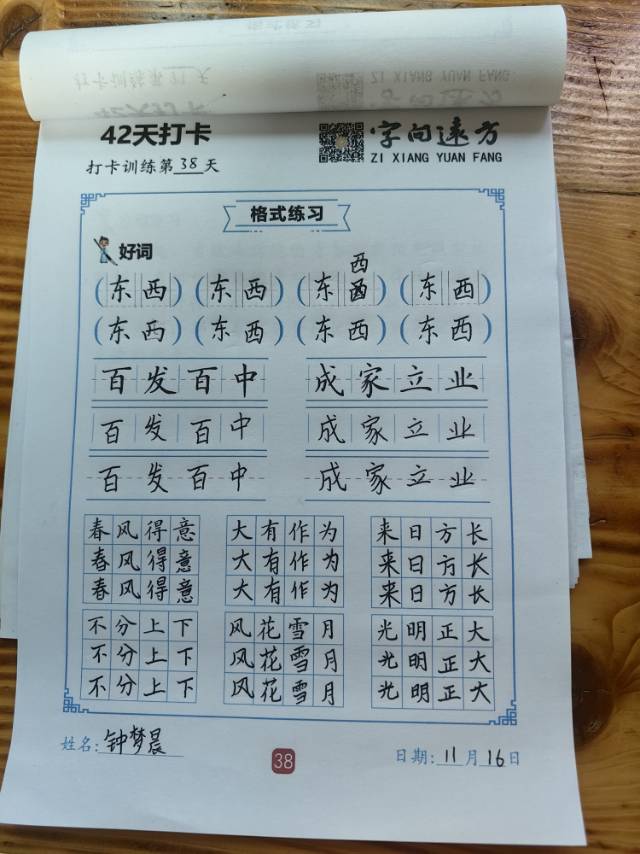 42天打卡
字向远方
ZI XIANG YUAN FANG
打卡训练第38天
格式练习
好词
(东西) (东西) (东西) (东西)
西
(东西) (东西) (东西) (东西)
百发百中 成家立业
百发百中 成家立业
百发百中 成家立业
春风得意 大有作为 来日方长
春风得意 大有作为 来日方长
春风得意 大有作为 来日方长
不分上下 风花雪月 光明正大
不分上下 风花雪月 光明正大
不分上下 风花雪月 光明正大
姓名:钟梦晨 38 日期:11月16日